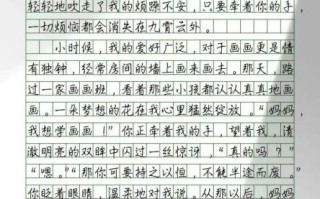 轻轻地吹走了我的烦躁不安，只要牵着你的子，
一切烦恼都会消失在九霄云外。
小时候，我的爱好广泛，对于画画更是情
有独钟，经常房间的墙上来画去。那天，路
过一家画画班，看着那些小孩都认认真真地画
画。一朵梦想的花在我心里猛然绽放。“妈妈，
我想学画画！”你正牵着我的子，望着我，清
澈明亮的双眸中闪过一丝惊讶，“真的吗？”
“嗯。”“那你可要持之以恒，不能半途而废。”
你眨着眼睛，温柔地对我说。从那以后，妈妈